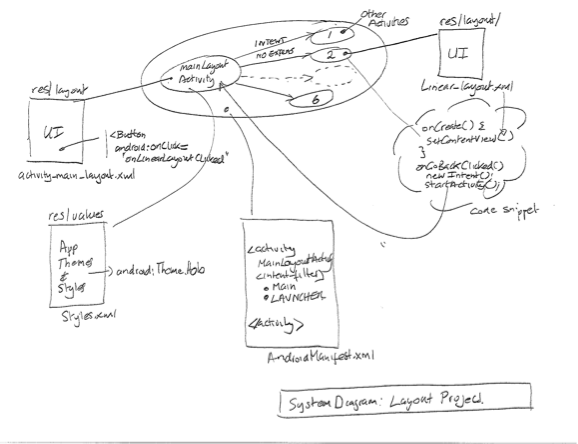 Other
Activities
res/layout/
INTENT
NO EXTRAS
1
2
6
mainLayout
Activity
UI
Linear_layout.xml
res/layout
UI
<Button
android:onClick=
"onLinearLayoutClicked"
activity_main_layout.xml
onCreate() {
setContentView( )
}
onGoBackClicked()
new Intent();
startActivity();
code snippet
res/values
App
Themes
&
Styles
android:Theme.Holo
Styles.xml
<activity
MainLayoutActivity
<intent-filter>
• Main
• LAUNCHER
</activity>
AndroidManifest.xml
System Diagram: Layout Project.